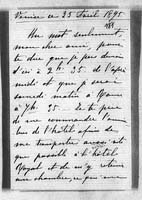 Venise ce 25 Avril 1895
Un mot seulement,
mon cher ami, pour
te dire que je peu
d'ici à 2h 25. de l'après
midi et que je serai
matin à
à 7h. 25. Je te prie
de me commander l'omni
bus de l'hôtel afin de
me transporter aussi-tôt
que possible à l'hôtel
Royal et de m'y retenir
une chambre,